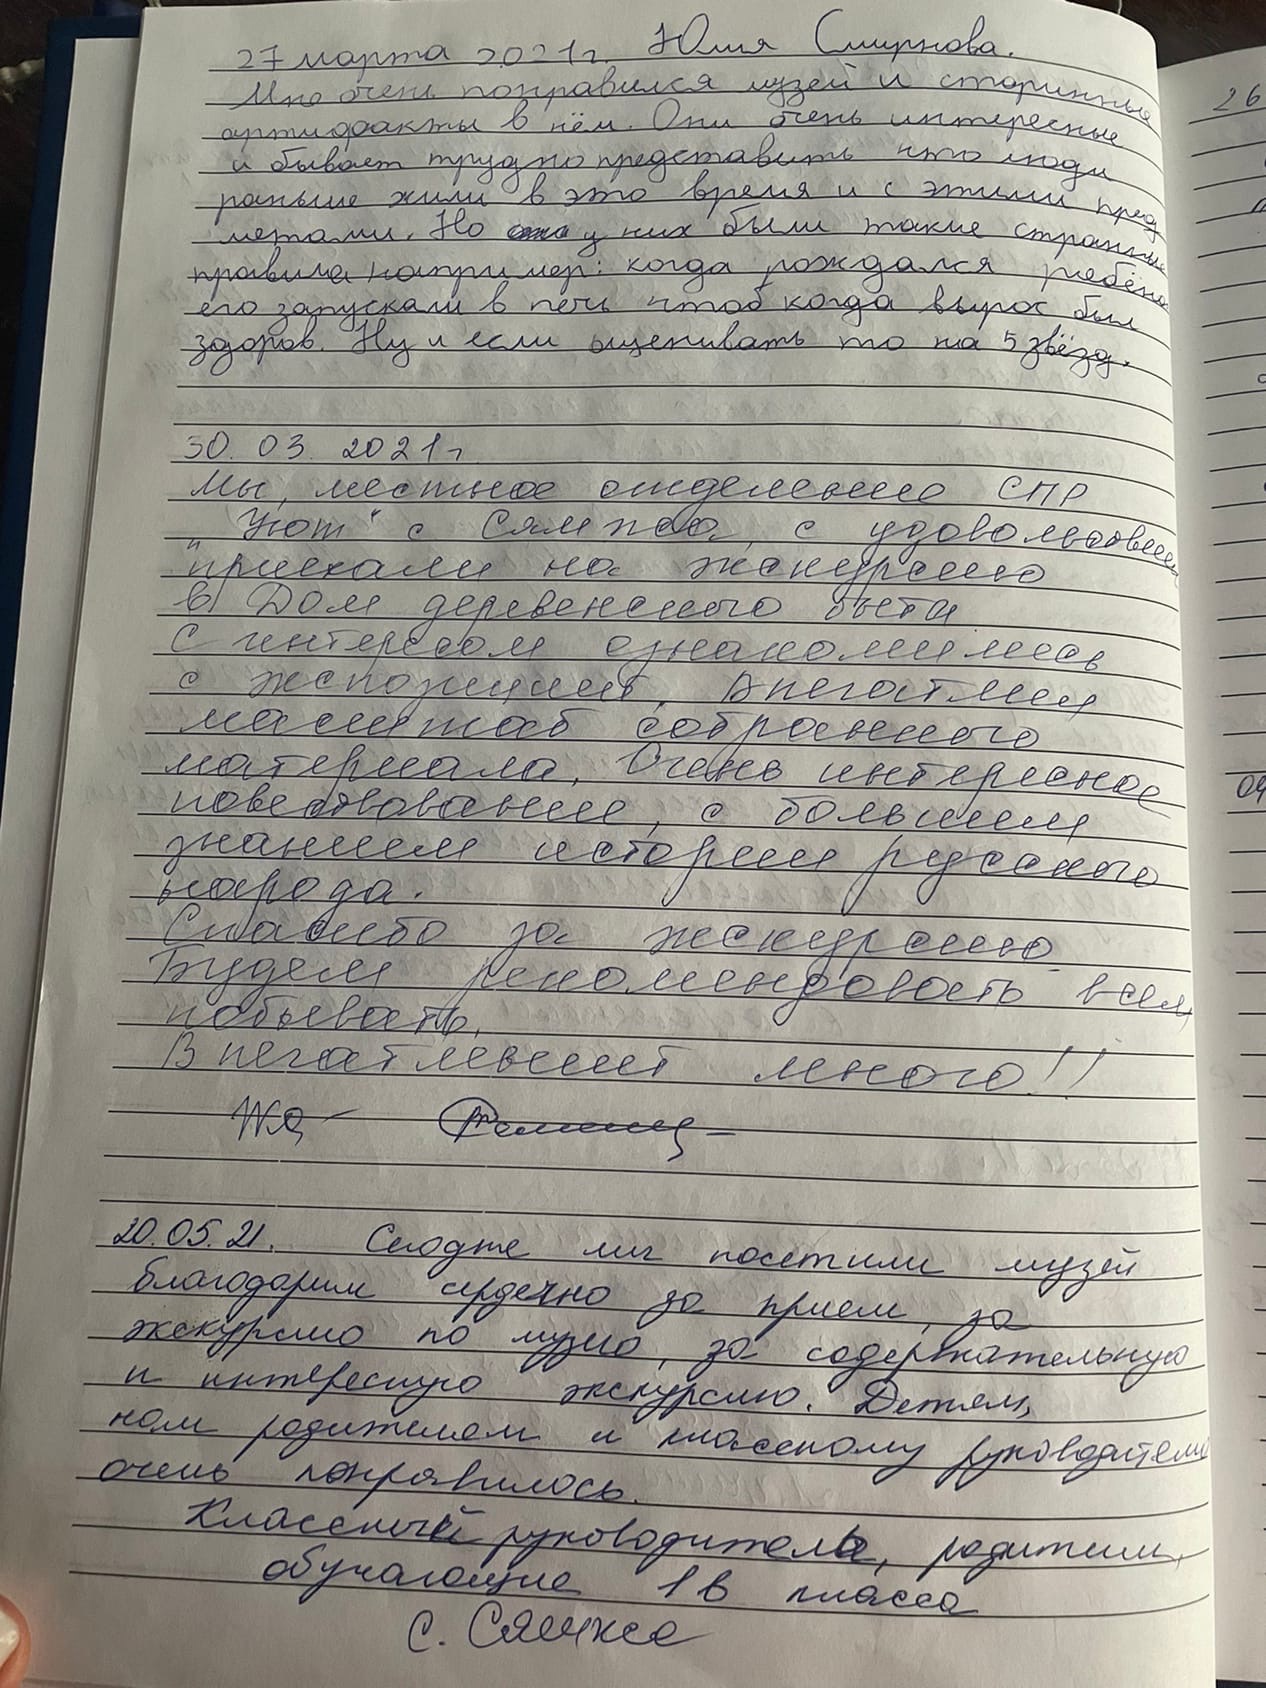 27 марта 2021г. Юлия Смирнова.
Мне очень понравился музей и старинные
артифакты в нём. Они очень интересные
и бывает трудно представить что люди
раньше жили в это время и с этими пред
метами. Но у них были такие странные
правила например: когда рождался ребёнок
его запускали в печь чтоб когда вырос был
здоров. Ну и если оценивать то на 5 звёзд.
30.03.2021г
Мы, местное отделение СПР
"Уют" с Сямжа, с удовольствием
приехали на экскурсию
в Дом деревенского быта
с интересом ознакомились
с экспозицией, впечатлил
масштаб собранного
материала, Очень интересное
повествование, с большим
знанием истории русского
народа.
Спасибо за экскурсию
Будем рекомендовать всем
побывать,
Впечатлений много!!
20.05.21. Сегодня мы посетили музей
благодарим сердечно за прием, за
экскурсию по музею, за содержательную
и интересную экскурсию. Детям,
нам родителям и классному руководителю
очень понравилось.
Классный руководитель, родители,
обучающие 1в класса
с. Сямжа
26
04